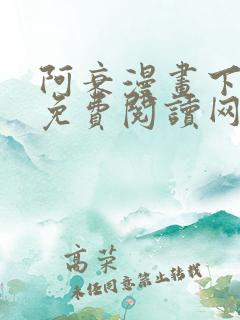 阿衰漫畫下
免費閱讀网
高荣
未经同意禁止转载